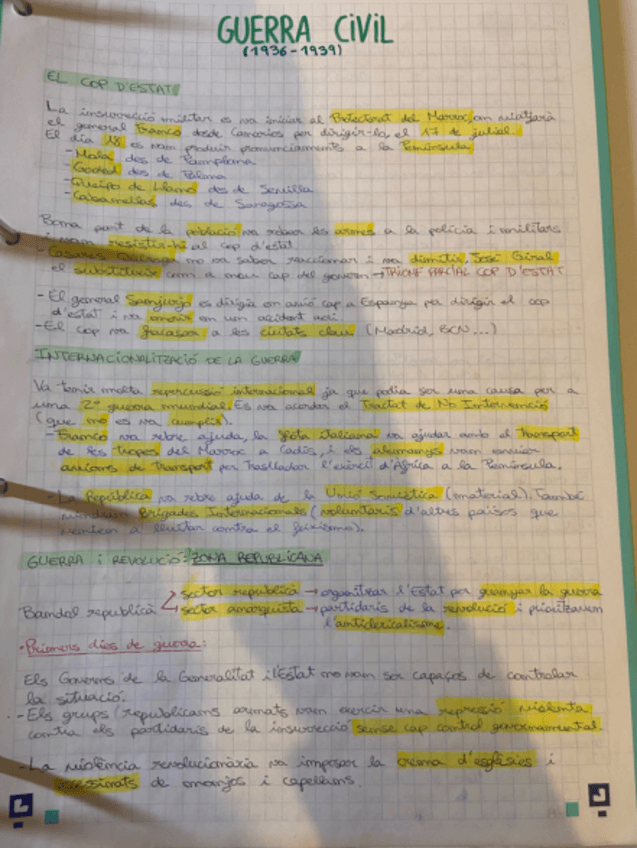 GUERRA CIVIL
(1936-1939)
EL COP D'ESTAT
La insurrecció militar es va iniciar al Protectorat del Marroc, on viatjarà
el general Franco desde Canarias per dirigir-la, el 17 de juliol.
El dia 18 es van produir pronunciaments a la Península
- Mola des de Pamplona
- Goded des de Palma
- Queipo de Llano des de Sevilla
- Cabanellas des de Saragossa
Bona part de la població va rebre les armes a la policia i militars
i van resistir-hi al cop d'estat
- Casares Quiroga no va saber reaccionar i va dimitir. José Giral
el substitueix com a nou cap del govern → TRIONF PARCIAL COP D'ESTAT
- El general Sanjurjo es dirigia en avió cap a Espanya per dirigir el cop
d'estat i va morir en un accident aeri.
- El cop va fracassar a les ciutats clau (Madrid, BCN...)
INTERNACIONALITZACIÓ DE LA GUERRA
Va tenir molta repercussió internacional ja que podia ser una causa per a
una 2ª guerra mundial. Es va acordar el Tractat de No Intervenció
(que no es va cumplir).
- Franco va rebre ajuda, la flota italiana va ajudar amb el transport
de les tropes del Marroc a Cadis, i els alemanys van enviar
avions de transport per traslladar l'exèrcit d'Àfrica a la Península.
- La República va rebre ajuda de la Unió Soviètica (material). També
vindran Brigades Internacionals (voluntaris d'altres països que
venien a lluitar contra el feixisme).
GUERRA i REVOLUCIÓ: ZONA REPUBLICANA
Bandol republicà
sector republicà → organitzar l'Estat per guanyar la guerra
sector anarquista → partidaris de la revolució i prioritzaven
l'anticlericalisme.
• Primers dies de guerra:
Els Governs de la Generalitat i l'Estat no van ser capaços de controlar
la situació.
- Els grups (republicans armats van exercir una repressió violenta
contra els partidaris de la insurrecció sense cap control governamental.
- La violència revolucionària va imposar la crema d'esglésies i
assessinats de monjos i capellans.